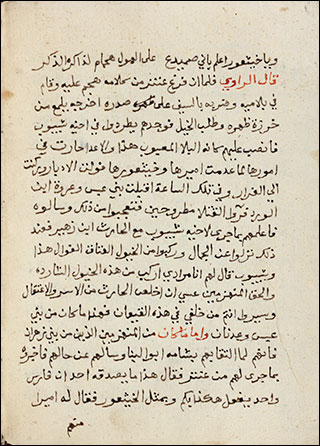 وياخيثعور اعلم باني صميدع على الهول هجام لذاكر والذكر
قال الراوي فلما ان فرغ عنتر من كلامه هجم عليه وقام
في بلاميه وضربه بالسيف على صدره اخرجه يلمع من
خرزة ظهره وطلب الخيل فوجدهم يطردوا في اخيه شيبوب
فانصب عليهم كانه البلا المصبوب هذا والاعدا حارت في
امورها لما عدمت اميرها وخيثعورها فولت الادبار وركنت
الى الفرار وفي تلك الساعة اقبلت بني عبس وعروة ابن
الورد فراوا القتلا مطروحين فتعجبوا من ذلك وسالوه
فاعلمهم بما جرى لاخيه شيبوب مع الحارث ابن زهير فعند
ذلك نزلوا عن الجمال وركبوا من الخيول العتاق الغوال هذا
وشيبوب قال لهم انا مرادي اركب من هذه الخيول الشارده
والحق المنهزمين عسى ان اخلص الحارث من الاسر والاعتقال
وسيروا انتم من خلفي في هذه القيعان فهذا ما كان من بني
عبس وعدنان واما ما كان من المنهزمين الذين من بني زهران
فانهم لما التقا بهم بشامه ابو لبنا وسالهم عن حالهم فاخبروه
بما جرى لهم من عنتر فقال هذا ما يصدقه احد ان فارس
واحد يفعل هكذا بكم ويمثل الخيثعور فقال له اميرا
منهم